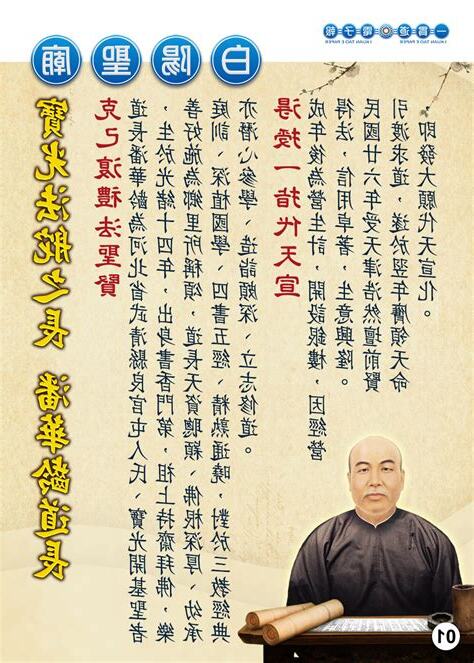 一貫道電子報
I KUAN TAO PAPER I KUAN TAO PAPER
白陽聖廟
寶光法舵之長 潘華齡道長
克己復禮法聖賢
道長潘華齡為河北省武清縣良官屯人氏、寶光開基聖者
，生於光緒十四年，出身書香門第，祖上持齋拜佛，樂
善好施為鄉里所稱頌，道長天資聰穎、佛根深厚、幼承
庭訓、深植國學、四書五經、精熟通曉，對於三教經典
亦潛心參學，造詣頗深，立志修道。
得授一指代天宣
成年後為營生計，開設銀樓，因經營
得法，信用卓著，生意興隆。
民國廿六年受天津浩然壇前賢
引渡求道，遂於翌年膺領天命
，即發大願代天宣化。
01